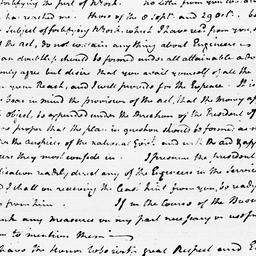 fortifying the port of N York. No letter from you
has reached me. those of the 8 Sept. and 29 Oct.
Subject of fortifying N York. which I have recd from you, &
the Act, do not contain any thing about Engineers
can doubtless should be formed under all attainable
only agree but desire that you avail yourself of all the
in your Reach, and I will provide for the Expence. It is
to bear in mind the provision of the Act, that the Money
object, is expended under the direction of the President of
is proper that the plan in question should be formed, as
the auspices of the national Govt. and with the aid
they most confide in. I presume the President
readily direct any of the Engineers in the Service
and I shall on receiving the least hint from you, be ready
from him. If in the Course of the
any measures on my part necessary or useful
to mention them
have the Honor to be with great Respect and